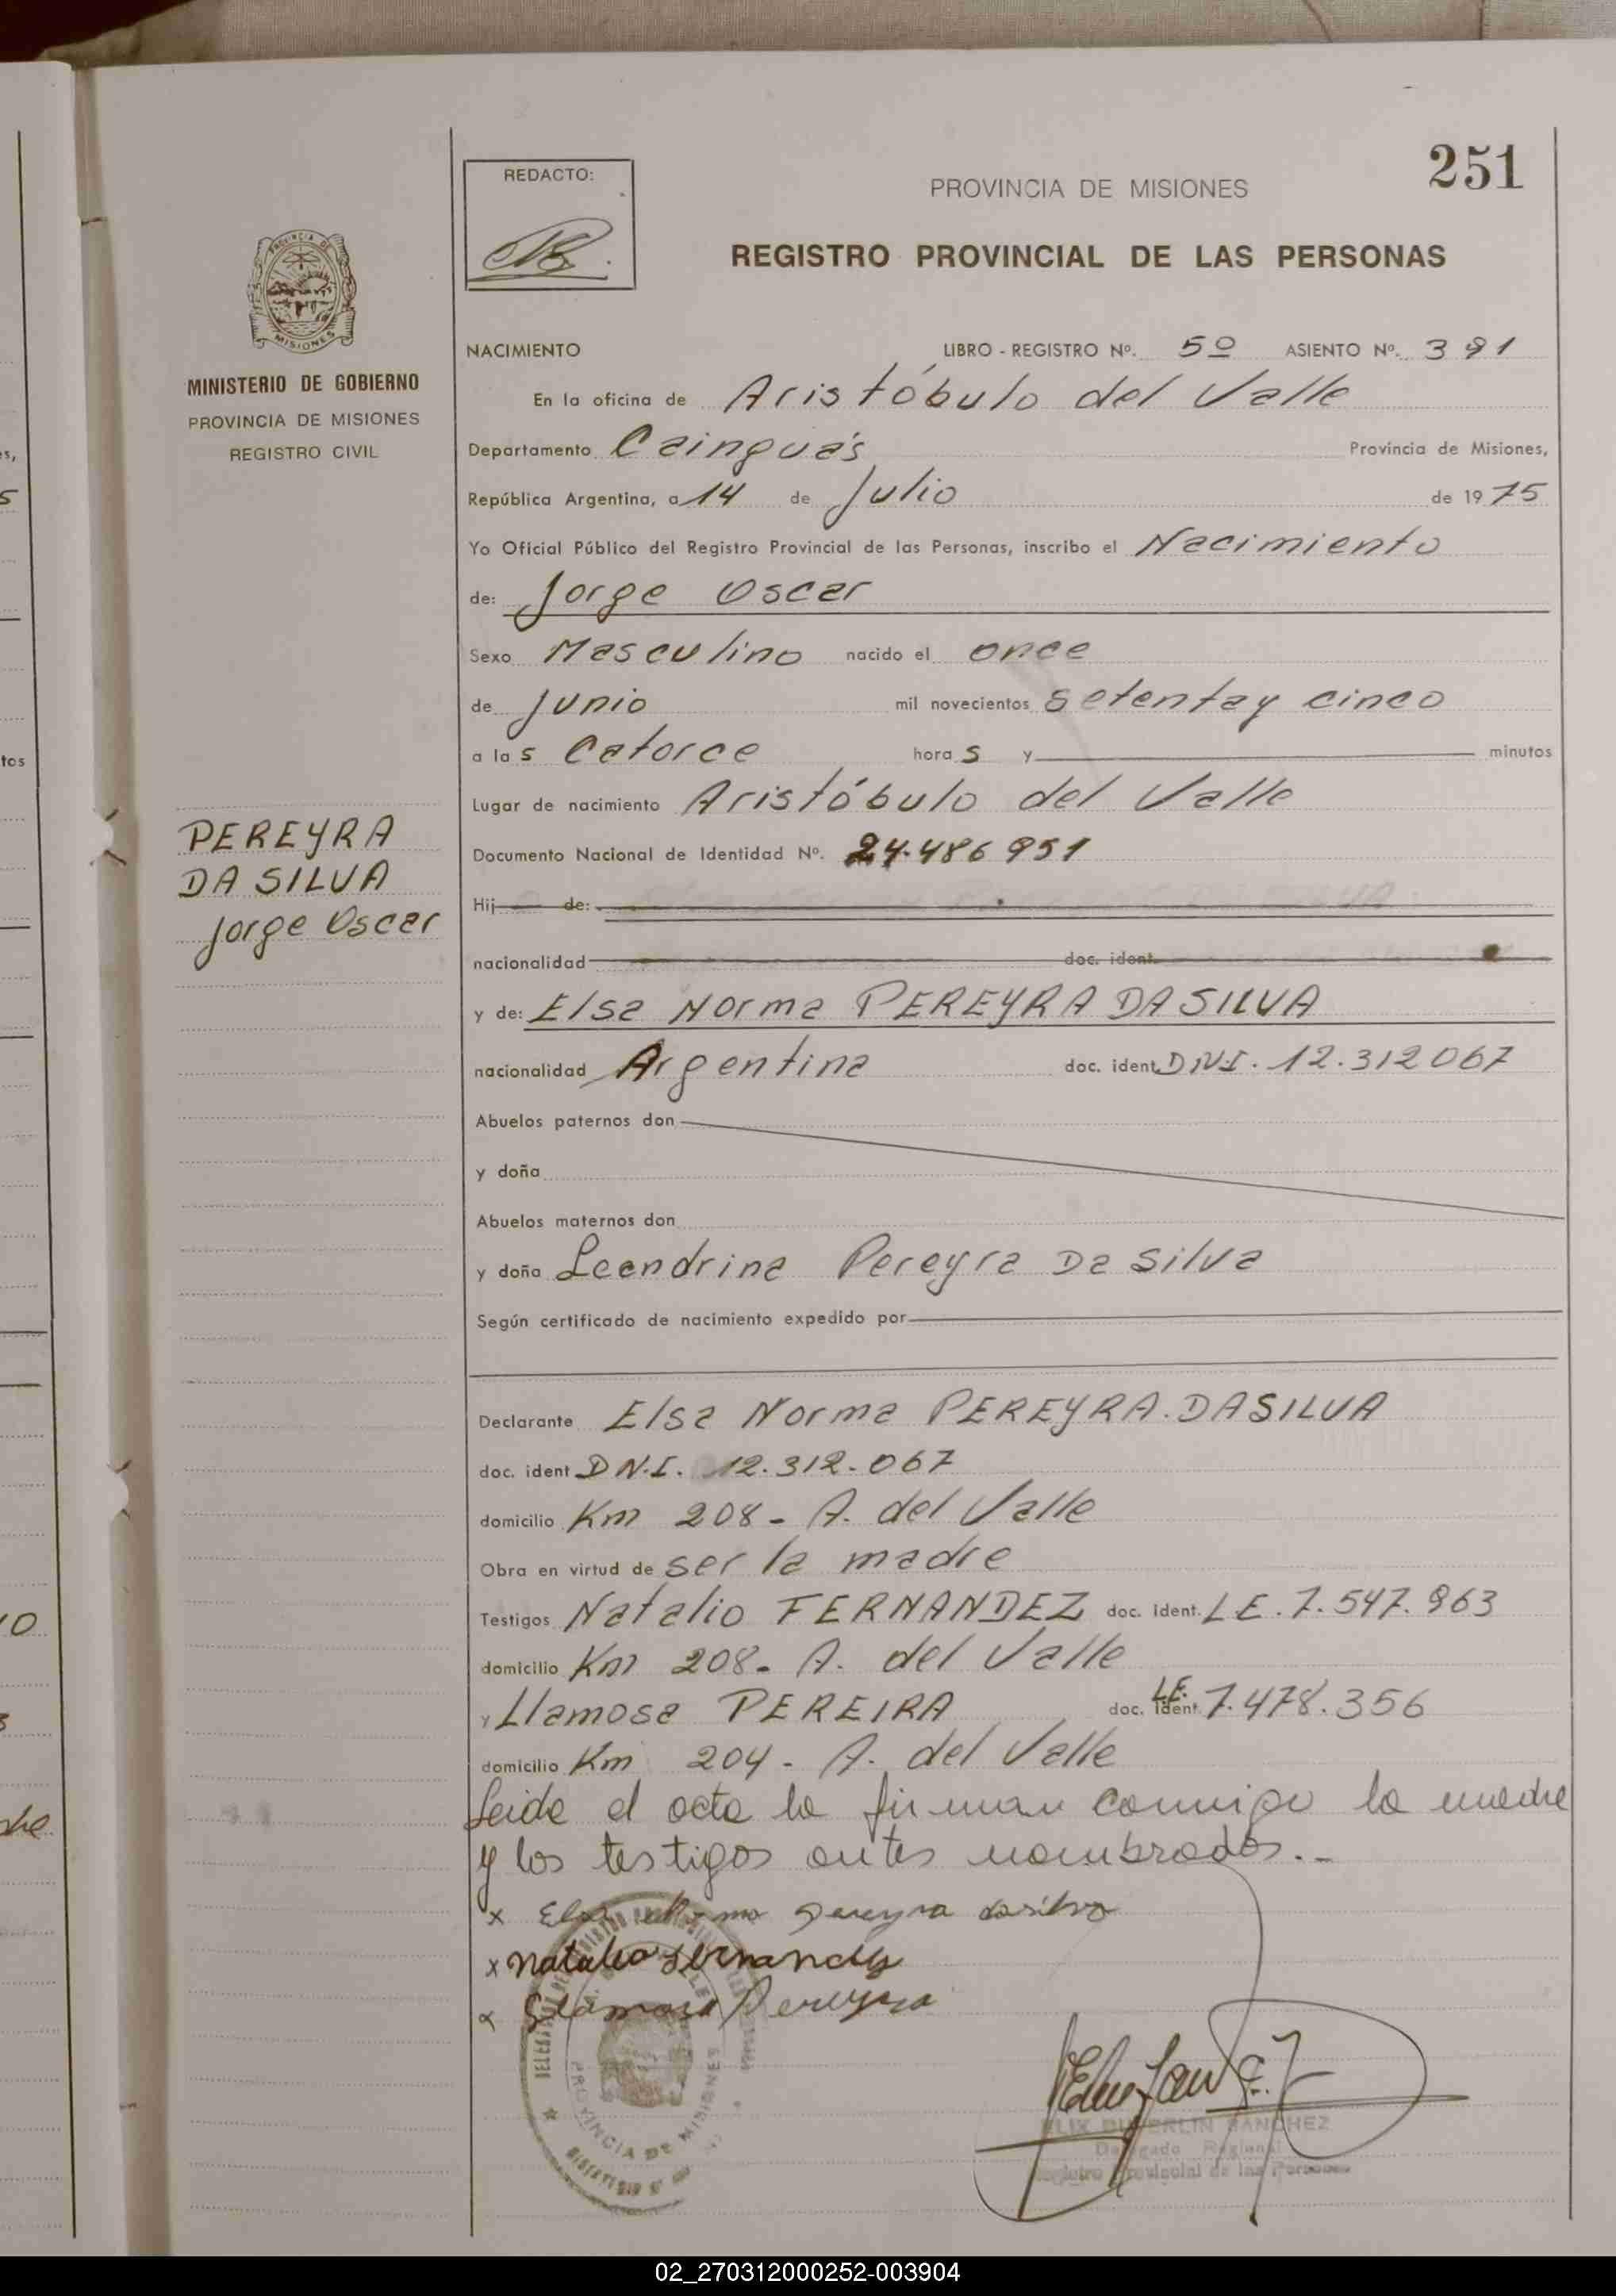 251
REDACTO:
PROVINCIA DE MISIONES
REGISTRO PROVINCIAL DE LAS PERSONAS
MINISTERIO DE GOBIERNO
PROVINCIA DE MISIONES
REGISTRO CIVIL
PEREYRA
DA SILVA
Jorge Oscar
NACIMIENTO LIBRO - REGISTRO Nº. 5º ASIENTO Nº. 391
En la oficina de Aristóbulo del Valle
Departamento Cainguás Provincia de Misiones,
República Argentina, a 14 de Julio de 1975
Yo Oficial Público del Registro Provincial de las Personas, inscribo el Nacimiento
de: Jorge Oscar
Sexo Masculino nacido el once
de Junio mil novecientos setenta y cinco
a las Catorce horas y minutos
Lugar de nacimiento Aristóbulo del Valle
Documento Nacional de Identidad Nº. 24.486951
Hij de:
nacionalidad doc. ident.
y de: Elsa Norma PEREYRA DA SILVA
nacionalidad Argentina doc. ident. DN.I. 12.312067
Abuelos paternos don
y doña
Abuelos maternos don
y doña Leandrina Pereyra Da Silva
Según certificado de nacimiento expedido por
Declarante Elsa Norma PEREYRA.DASILVA
doc. ident D N.I. 12.312.067
domicilio Km 208 - A. del Valle
Obra en virtud de ser la madre
Testigos Natalio FERNANDEZ doc. ident. L E. 7.547.963
domicilio Km 208- A. del Valle
y Llamosa PEREIRA doc. ident. L.E. 7.478.356
domicilio Km 204 - A. del Valle
Leida el acta la firman conmigo la madre
y los testigos antes nombrados.-
x Elsa Norma Pereyra dasilva
x Natalio Fernandez
x Llamosa Pereyra
PROVINCIA DE MISIONES
SANCHEZ
Delegado Regional
Registro Provincial de las Personas
02_270312000252-003904